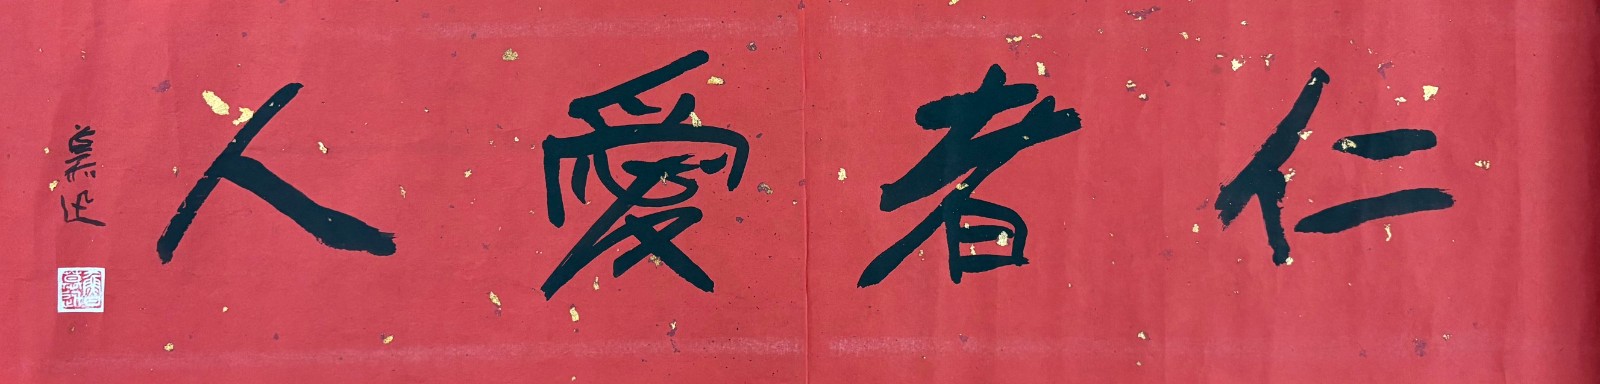 仁者愛人